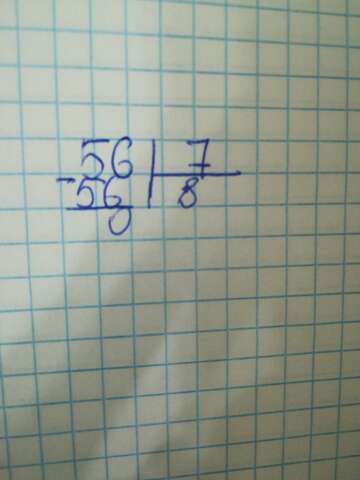 56 | 7
-56 | 8
0